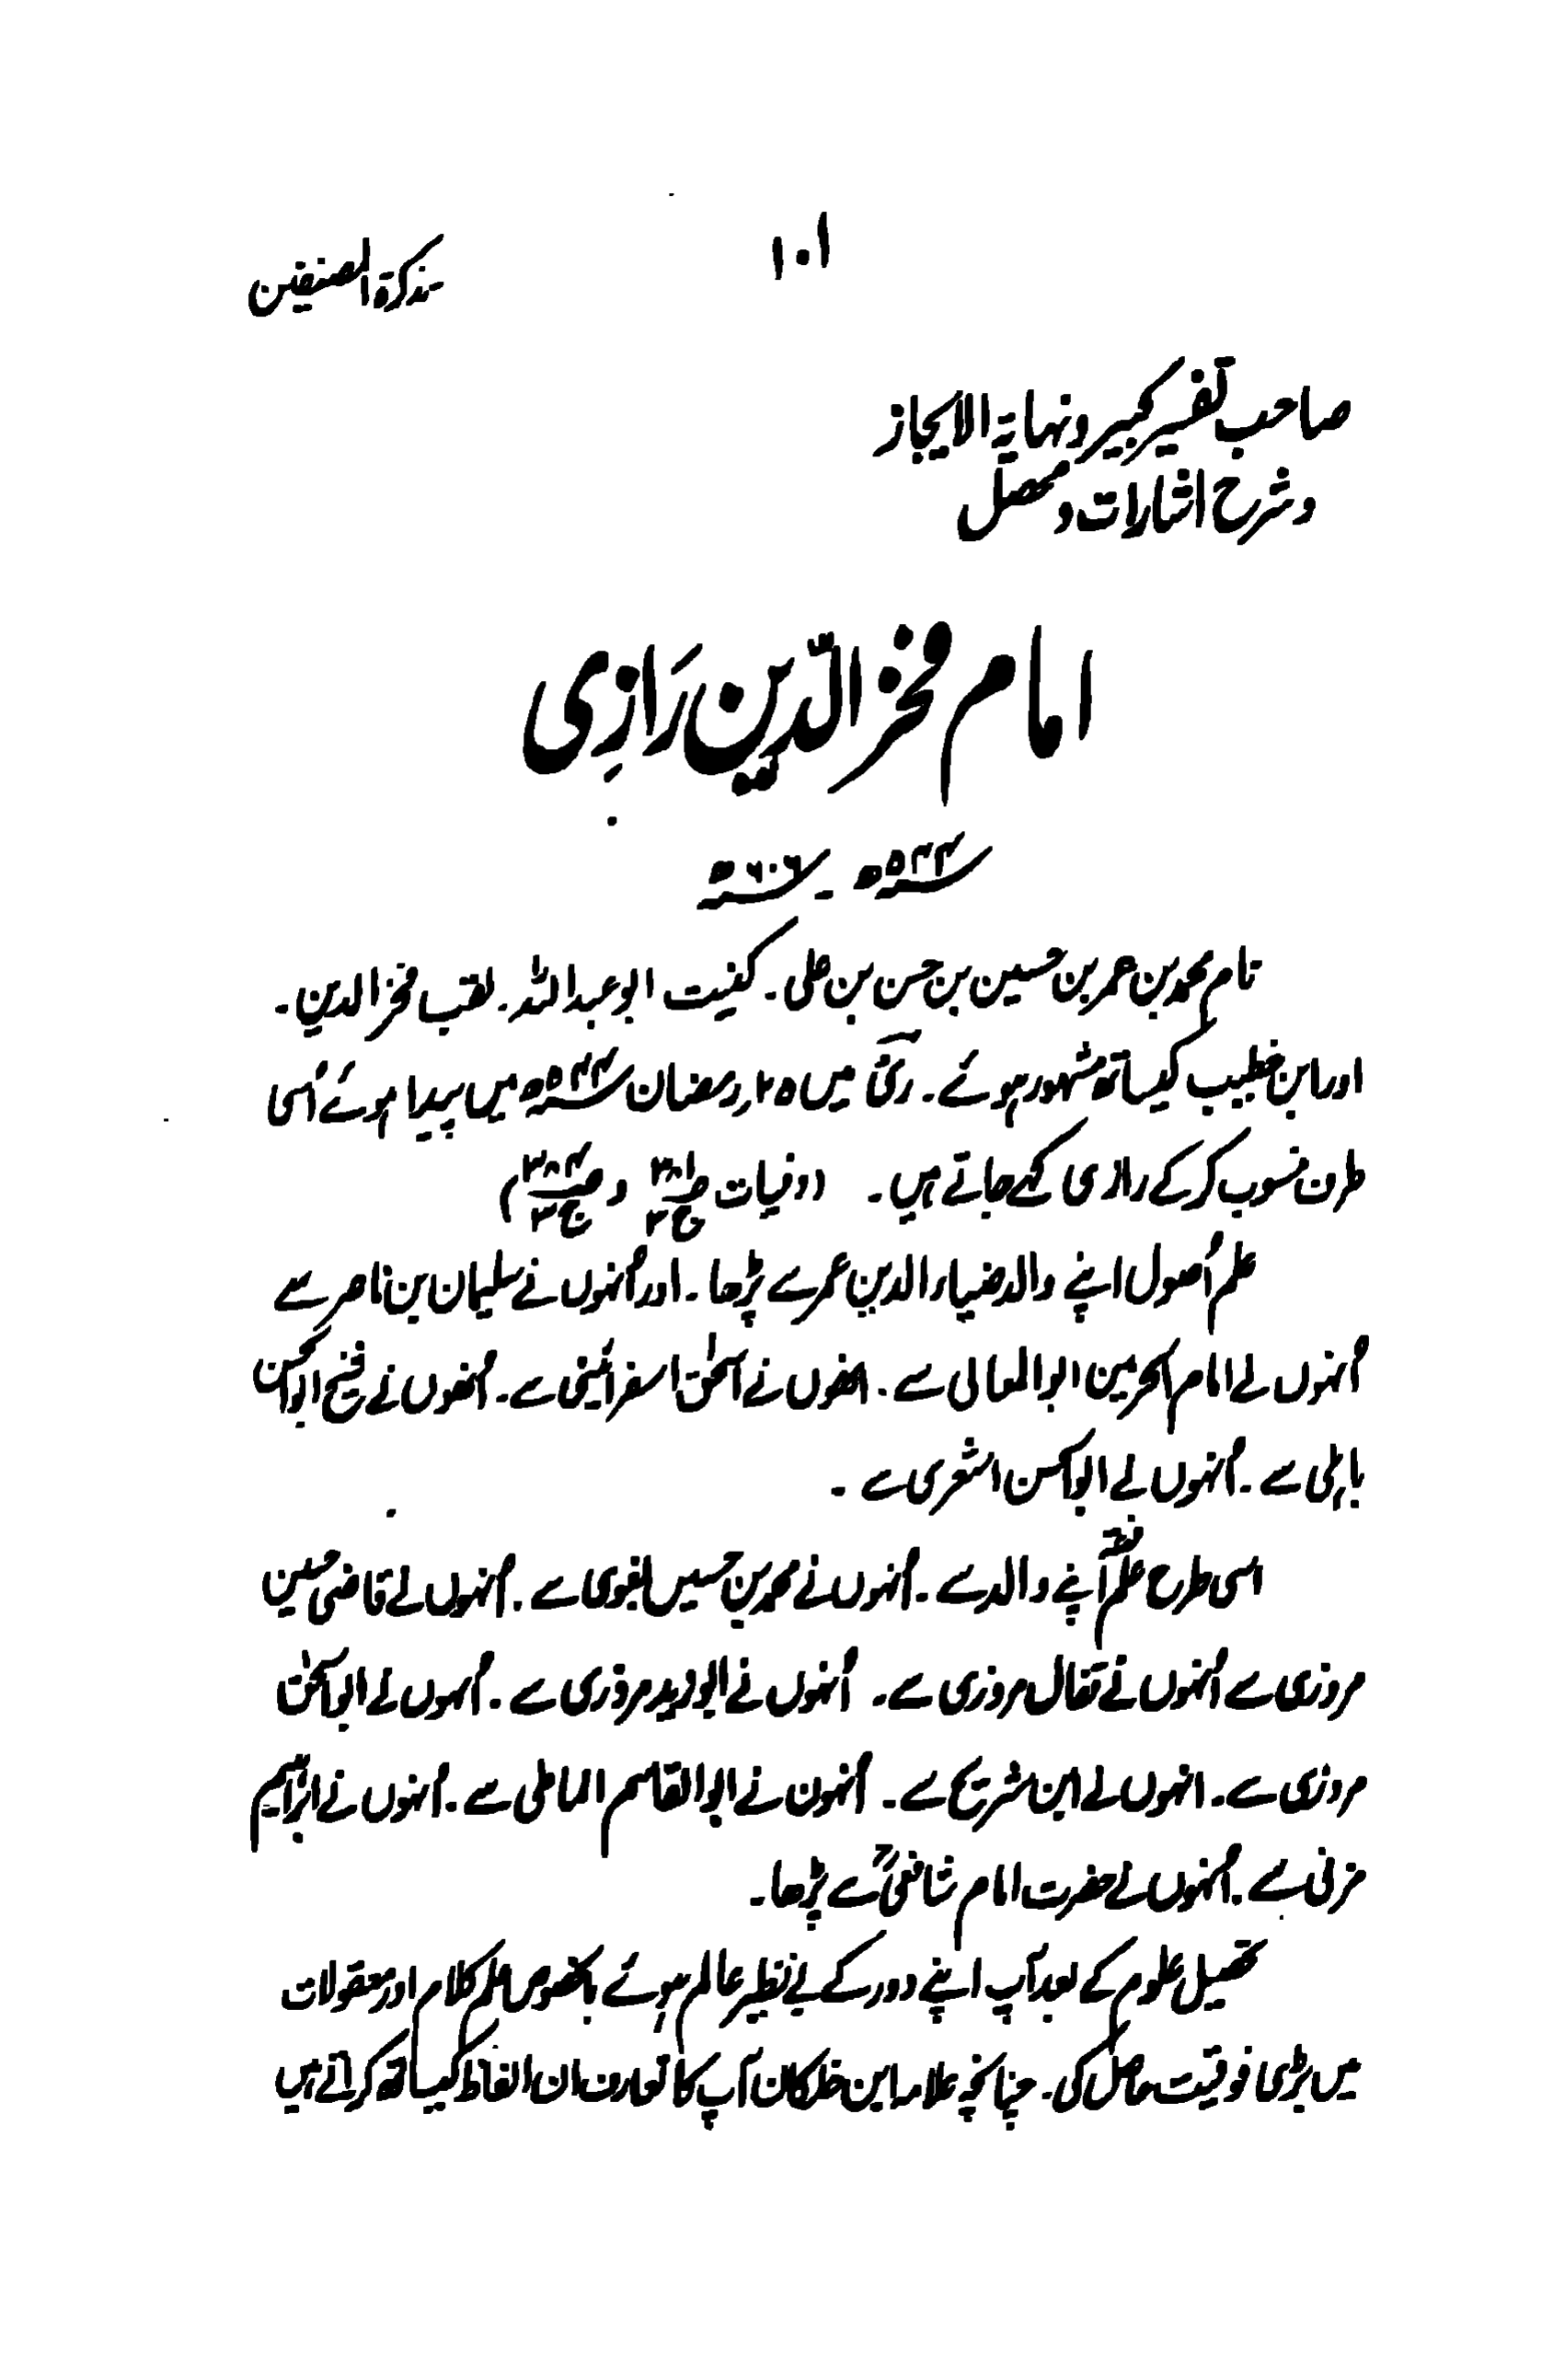 ۱۰۱
تذکرۃ المصنفین
صاحب تفسیر کبیر و نہایۃ الایجاز
و شرح اشارات و محصل
امام فخر الدّین رَازِی
سنہ ۵۴۴ھ ـ سنہ ۶۰۶ھ
نام محمد بن عمر بن حسین بن حسن بن علی۔ کنیت ابو عبد اللہ۔ لقب فخر الدین۔
اور ابن خطیب کیساتھ مشہور ہوئے۔ رَیّ میں ۲۵ رمضان سنہ ۵۴۴ھ میں پیدا ہوئے اُسی
طرف منسوب کرکے رازی کہے جاتے ہیں۔ (وفیات ص ج۳ و ص ج۳)
علم اُصول اپنے والد ضیاء الدین عمر سے پڑھا۔ اور اُنہوں نے سلیمان بن ناصر سے
اُنہوں نے امام الحرمین ابو المعالی سے۔ انھوں نے اسحٰق اسفرائینی سے۔ اُنھوں نے شیخ ابو الحسن
باہلی سے۔ اُنہوں نے ابو الحسن اشعری سے۔
اسی طرح علم فقہ اپنے والد سے۔ اُنہوں نے محمد بن حسین بغوی سے۔ اُنہوں نے قاضی حسین
مروزی سے اُنہوں نے قفال مروزی سے۔ اُنہوں نے ابو زید مروزی سے۔ اُنہوں نے ابو اسحٰق
مروزی سے۔ انہوں نے ابن شریح سے۔ اُنہون نے ابو القاسم انماطی سے۔ اُنہوں نے ابراہیم
مزنی سے۔ اُنہوں نے حضرت امام شافعیؒ سے پڑھا۔
تحصیل علوم کے بعد آپ اپنے دور کے بے نظیر عالم ہوئے بالخصوص علم کلام اور معقولات
میں بڑی فوقیت حاصل کی۔ چنانچہ علامہ ابن خلکان آپ کا تعارف ان الفاظ کیساتھ کراتے ہیں